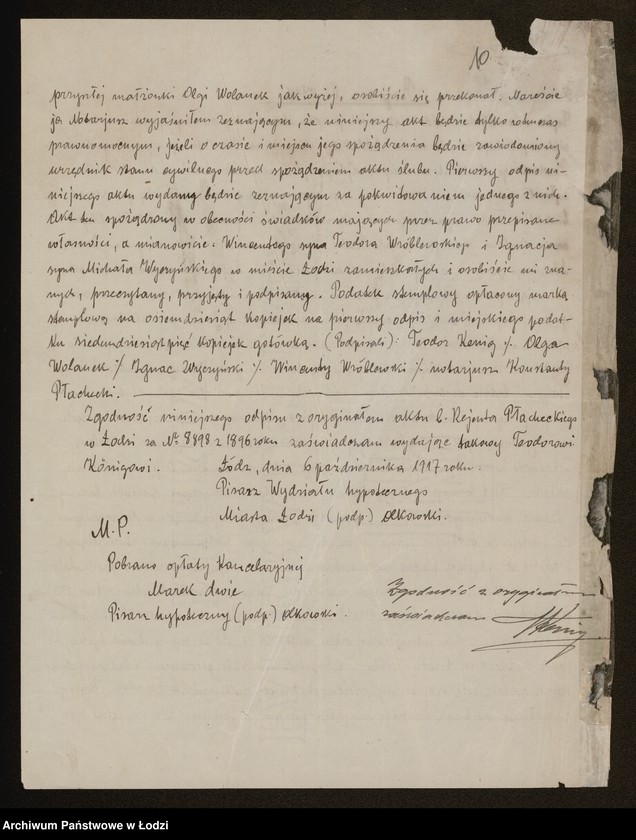 10
przyszłej małżonki Olgi Wolanek jak wyżej, osobiście się przekonał. Nareście
ja Notarjusz wyjaśniłem zeznającym, że niniejszy akt będzie tylko wówczas
prawomocnym, jeżeli o czasie i miejscu jego sporządzenia będzie zawiadomiony
urzędnik stanu cywilnego przed sporządzeniem aktu ślubu. Pierwszy odpis ni-
niejszego aktu wydany będzie zeznającym za pokwitowaniem jednego z nich.
Akt ten sporządzony w obecności świadków mających przez prawo przepisane
własności, a mianowicie: Wincentego syna Teodora Wróblewskiego i Ignacja
syna Michała Wyczyńskiego w mieście Łodzi zamieszkałych i osobiście mi zna-
nych, przeczytany, przyjęty i podpisany. Podatek stemplowy opłacony marką
stemplową na osiemdziesiąt kopiejek na pierwszy odpis i miejskiego podat-
ku siedmdziesiąt pięć kopiejek gotówką. (Podpisali): Teodor Kenig ./. Olga
Wolanek ./. Ignac Wyczyński ./. Wincenty Wróblewski ./. notarjusz Konstanty
Płachecki.
Zgodność niniejszego odpisu z oryginałem aktu b. Rejenta Płacheckiego
w Łodzi za No 8898 z 1896 roku zaświadczam wydając takowy Teodorowi
Königowi. Łódź, dnia 6 października 1917 roku.
Pisarz Wydziału hypotecznego
Miasta Łodzi (podp.)
M.P.
Pobrano opłaty Kancelaryjnej
Marek dwie
Pisarz hypoteczny (podp.)
Zgodność z oryginałem
zaświadczam
Archiwum Państwowe w Łodzi